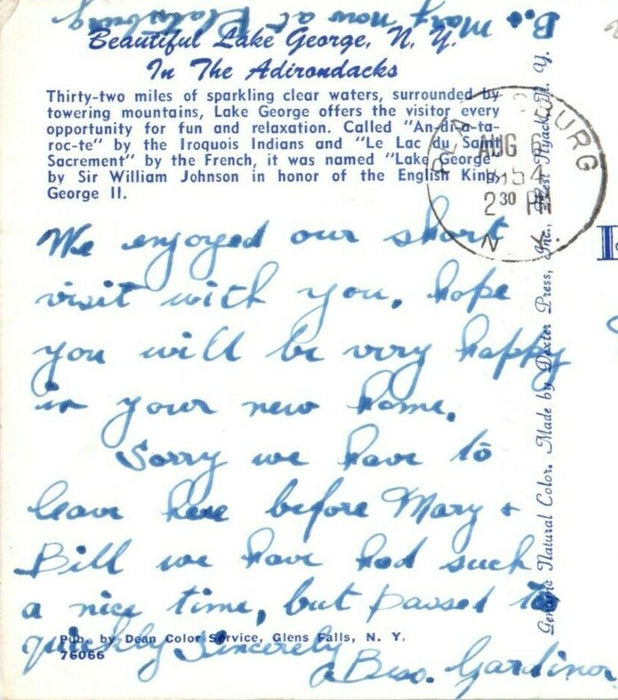 B. & Mary now at Plattsburg
Beautiful Lake George, N. Y.
In The Adirondacks
Thirty-two miles of sparkling clear waters, surrounded by
towering mountains, Lake George offers the visitor every
opportunity for fun and relaxation. Called "An-di-a-ta-
roc-te" by the Iroquois Indians and "Le Lac du Saint
Sacrement" by the French, it was named "Lake George"
by Sir William Johnson in honor of the English King,
George II.
PLATTSBURG
AUG 6
1954
2 30 PM
N Y
We enjoyed our short
visit with you. hope
you will be very happy
in your new home.
Sorry we have to
leave here before Mary +
Bill we have had such
a nice time, but passed to
quickly Sincerely
Gardinor
Pub. by Dean Color Service, Glens Falls, N. Y.
76066
Genuine Natural Color. Made by Dexter Press, Inc., West Nyack, N. Y.